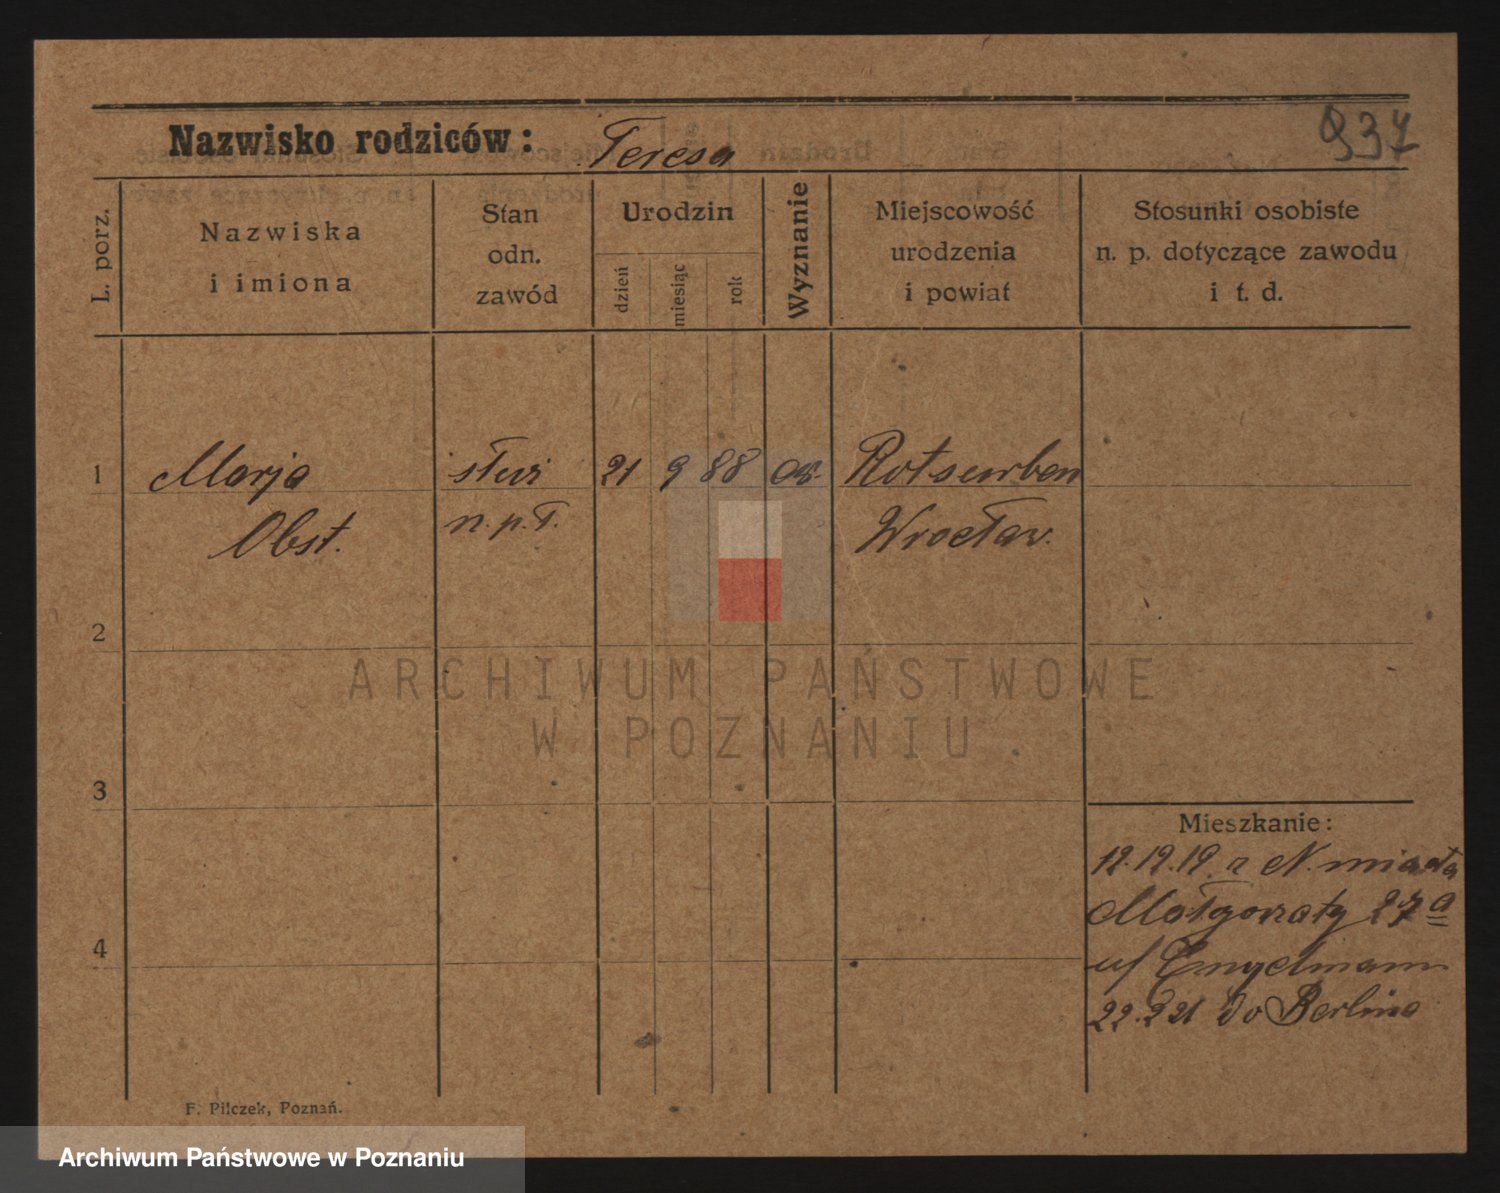 937
Nazwisko rodziców: Teresa
L. porz.
Nazwiska
i imiona
Stan
odn.
zawód
Urodzin
dzień
miesiąc
rok
Wyznanie
Miejscowość
urodzenia
i powiat
Stosunki osobiste
n. p. dotyczące zawodu
i t. d.
1 Marja 21 9 88
Obst. n.p.ł. Wrocław.
2
3
4
Mieszkanie:
12.12.19. z N. miasta
Małgorzaty 27a
u/ Engelmann
22.2 21 do Berlina
F. Pilczek, Poznań.
ARCHIWUM PAŃSTWOWE
W POZNANIU
Archiwum Państwowe w Poznaniu